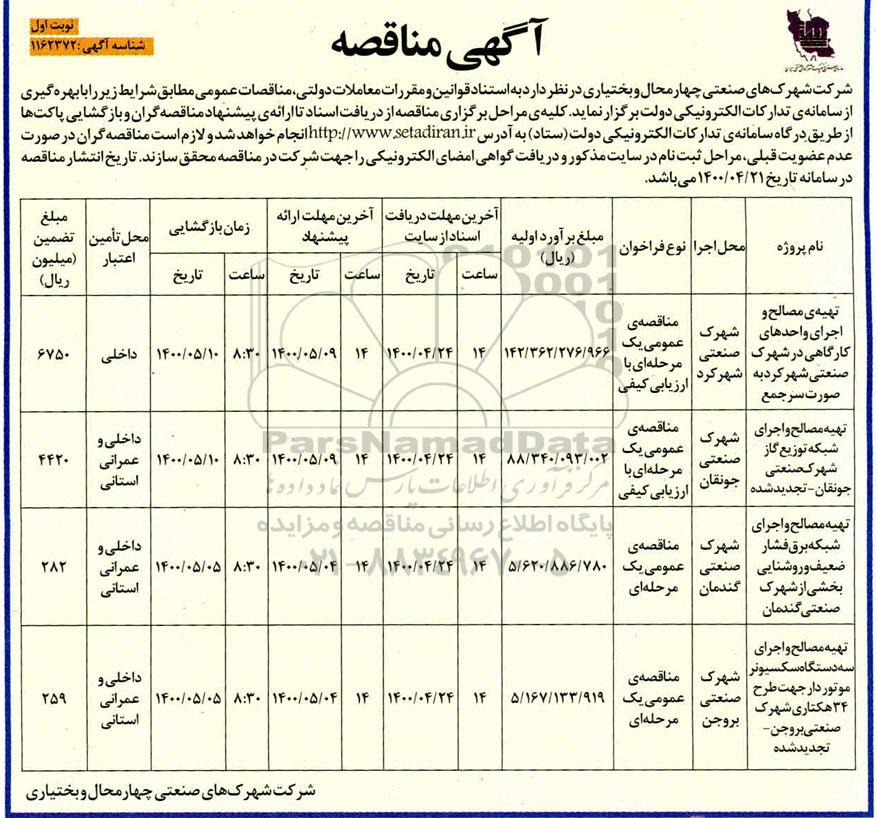 نوبت اول
شناسه آگهی: ۱۱۶۲۳۷۲
آگهی مناقصه
شرکت شهرک‌های صنعتی چهارمحال و بختیاری در نظر دارد به استناد قوانین و مقررات معاملات دولتی، مناقصات عمومی مطابق شرایط زیر را با بهره‌گیری
از سامانه‌ی تدارکات الکترونیکی دولت برگزار نماید. کلیه‌ی مراحل برگزاری مناقصه از دریافت اسناد تا ارائه‌ی پیشنهاد مناقصه‌گران و بازگشایی پاکت‌ها
از طریق درگاه سامانه‌ی تدارکات الکترونیکی دولت (ستاد) به آدرس http://www.setadiran.ir انجام خواهد شد و لازم است مناقصه‌گران در صورت
عدم عضویت قبلی، مراحل ثبت نام در سایت مذکور و دریافت گواهی امضای الکترونیکی را جهت شرکت در مناقصه محقق سازند. تاریخ انتشار مناقصه
در سامانه تاریخ ۱۴۰۰/۰۴/۲۱ می‌باشد.
نام پروژه
محل اجرا
نوع فراخوان
مبلغ برآورد اولیه
(ریال)
آخرین مهلت دریافت
اسناد از سایت
ساعت
تاریخ
آخرین مهلت ارائه
پیشنهاد
ساعت
تاریخ
زمان بازگشایی
ساعت
تاریخ
محل تأمین
اعتبار
مبلغ
تضمین
(میلیون
ریال)
تهیه‌ی مصالح و
اجرای واحدهای
کارگاهی در شهرک
صنعتی شهرکرد به
صورت سرجمع
شهرک
صنعتی
شهرکرد
مناقصه‌ی
عمومی یک
مرحله‌ای با
ارزیابی کیفی
۱۴۲/۳۶۲/۲۷۶/۹۶۶
۱۴
۱۴۰۰/۰۴/۲۴
۱۴
۱۴۰۰/۰۵/۰۹
۸:۳۰
۱۴۰۰/۰۵/۱۰
داخلی
۶۷۵۰
تهیه مصالح و اجرای
شبکه توزیع گاز
شهرک صنعتی
جونقان - تجدید شده
شهرک
صنعتی
جونقان
مناقصه‌ی
عمومی یک
مرحله‌ای با
ارزیابی کیفی
۸۸/۳۴۰/۰۹۳/۰۰۲
۱۴
۱۴۰۰/۰۴/۲۴
۱۴
۱۴۰۰/۰۵/۰۹
۸:۳۰
۱۴۰۰/۰۵/۱۰
داخلی و
عمرانی
استانی
۴۴۲۰
تهیه مصالح و اجرای
شبکه برق فشار
ضعیف و روشنایی
بخشی از شهرک
صنعتی گندمان
شهرک
صنعتی
گندمان
مناقصه‌ی
عمومی یک
مرحله‌ای
۵/۶۲۰/۸۸۶/۷۸۰
۱۴
۱۴۰۰/۰۴/۲۴
۱۴
۱۴۰۰/۰۵/۰۴
۸:۳۰
۱۴۰۰/۰۵/۰۵
داخلی و
عمرانی
استانی
۲۸۲
تهیه مصالح و اجرای
سه دستگاه سکسیونر
موتوردار جهت طرح
۳۴ هکتاری شهرک
صنعتی بروجن -
تجدید شده
شهرک
صنعتی
بروجن
مناقصه‌ی
عمومی یک
مرحله‌ای
۵/۱۶۷/۱۳۳/۹۱۹
۱۴
۱۴۰۰/۰۴/۲۴
۱۴
۱۴۰۰/۰۵/۰۴
۸:۳۰
۱۴۰۰/۰۵/۰۵
داخلی و
عمرانی
استانی
۲۵۹
ParsNamadData
مرکز فرآوری اطلاعات پارس نماد داده‌ها
پایگاه اطلاع رسانی مناقصه و مزایده
۰۲۱-۸۸۳۴۹۶۷۰-۵
شرکت شهرک‌های صنعتی چهارمحال و بختیاری